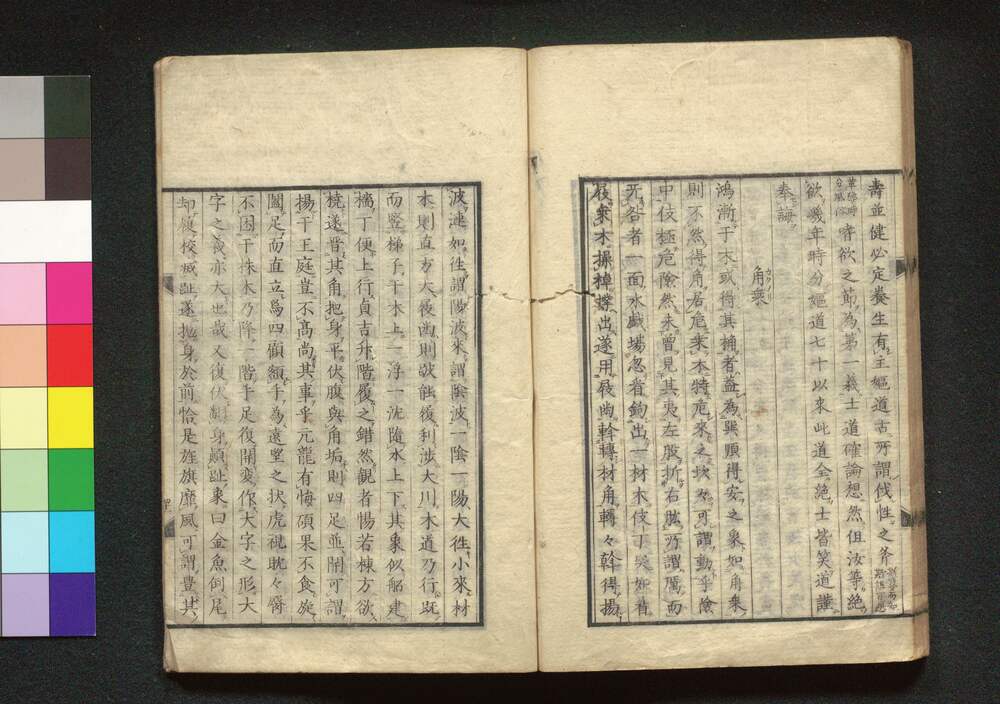 壽並健必定養生有主嫗道古所謂伐性之斧
嗜欲之節為第一義士道確論想然但汝等絶
欲幾年時分嫗道七十以來此道全絶士皆笑道謹
奉誨
角乘
鴻漸于木或得其桷者蓋為巽順得安之象如角乘
則不然得角者危乘木特危來之坎々可謂動乎險
中伎極危險然未曾見其夷左股折右肱所謂厲而
无咎者一面水戲場忽看鉤出一材木伎丁突如着
屐乘木操棹撑出遂用屐齒斡轉材角轉々斡得揚
波連如往謂陽波來謂陰波一陰一陽大往小來材
木則直方大屐齒則敧蝕復利涉大川木道乃行既
而竪梯子于木上一浮一沈隨水上下其象似船建
檣丁便上行貞吉升階履之錯然觀者惕若棟方欲
橈遂晋其角把身平伏腹與角垢則四足並開可謂
揚于王庭豈不高尚其事乎元龍有悔碩果不食旋
闔足而直立焉四顧額手為遠望之狀虎視眈々臀
不困于株木乃降一階手足復開変作大字之形大
字之義亦大也哉又復伏翻身顛趾象曰金魚倒尾
却履校滅趾遂抛身於前恰是旌旗靡風可謂豊其